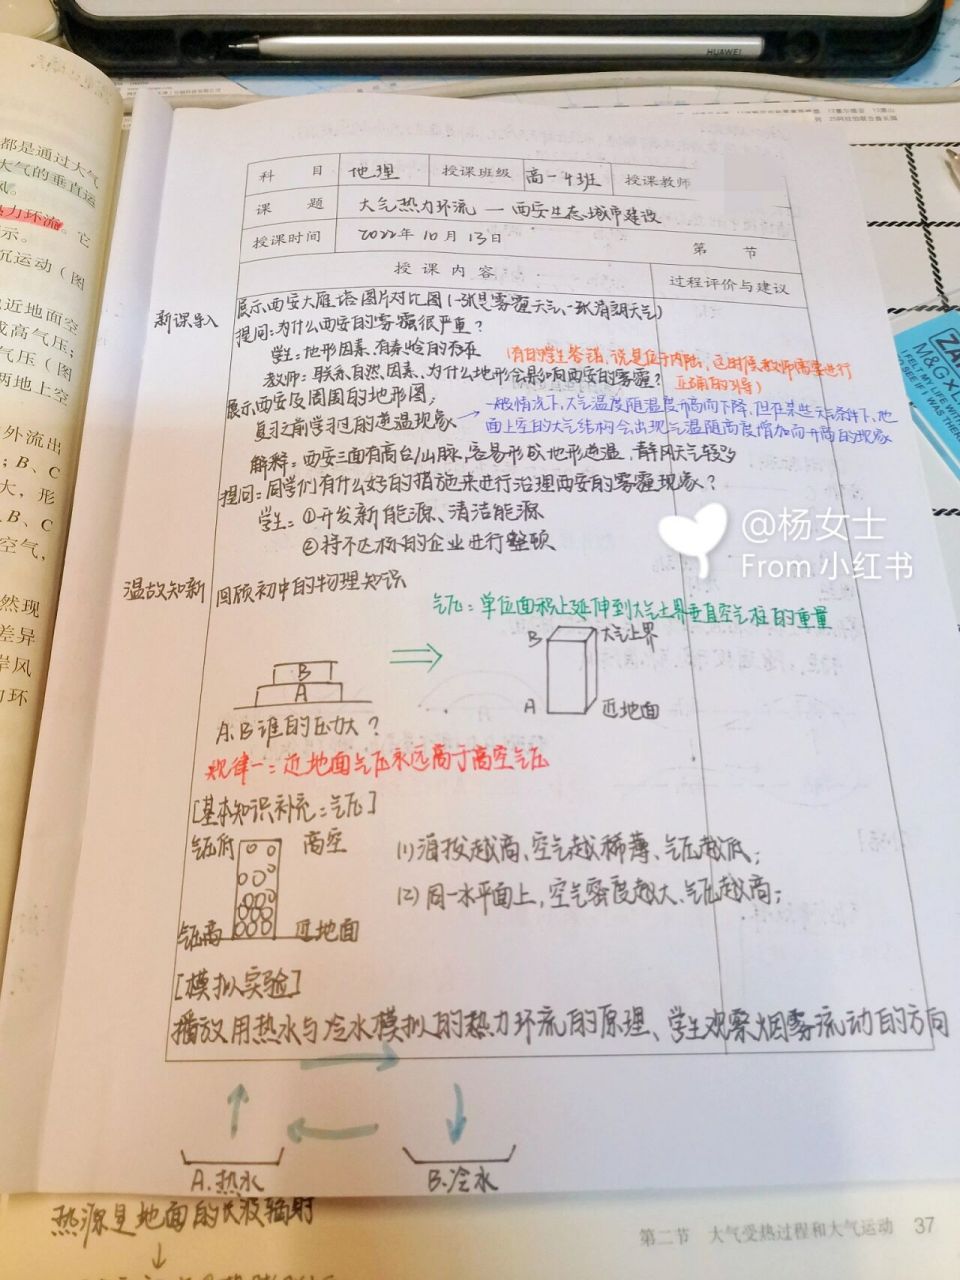 HUAWEI
都是通过大气
大气的垂直运
热力环流。它
示。
沉运动（图
近地面空
成高气压；
气压（图
两地上空
外流出
；B、C
大，形
、B、C
空气，
然现
差异
岸风
力环
科 目 地理 授课班级 高一4班 授课教师
课 题 大气热力环流 — 西安生态城市建设
授课时间 2022年10月13日 第 节
授课内容 过程评价与建议
新课导入
展示西安大雁塔图片对比图(一张是雾霾天气、一张晴朗天气)
提问：为什么西安的雾霾很严重？
学生：地形因素、有秦岭的存在
(有的学生答错，说是位于内陆，这时候教师需要进行
正确的引导)
教师：联系自然因素、为什么地形会影响西安的雾霾？
展示西安及周围的地形图；
复习之前学习过的逆温现象
→一般情况下，大气温度随温度升高而下降，但在某些天气条件下，地
面上空的大气结构会出现气温随高度增加而升高的现象
解释：西安三面有高台/山脉，容易形成地形逆温，静风天气较多
提问：同学们有什么好的措施来进行治理西安的雾霾现象？
学生：①开发新能源、清洁能源
②将不达标的企业进行整顿
@杨女士
From 小红书
温故知新 回顾初中的物理知识
气压：单位面积上延伸到大气上界垂直空气柱的重量
B 大气上界
B
A
A 近地面
A、B谁的压力大？
规律一：近地面气压永远高于高空气压
[基本知识补充：气压]
气压低 高空
(1)海拔越高、空气越稀薄、气压越低；
(2)同一水平面上，空气密度越大、气压越高；
气压高 近地面
[模拟实验]
播放用热水与冷水模拟的热力环流的原理、学生观察烟雾流动的方向
A.热水 B.冷水
热源是地面的长波辐射
↓
第二节 大气受热过程和大气运动 37